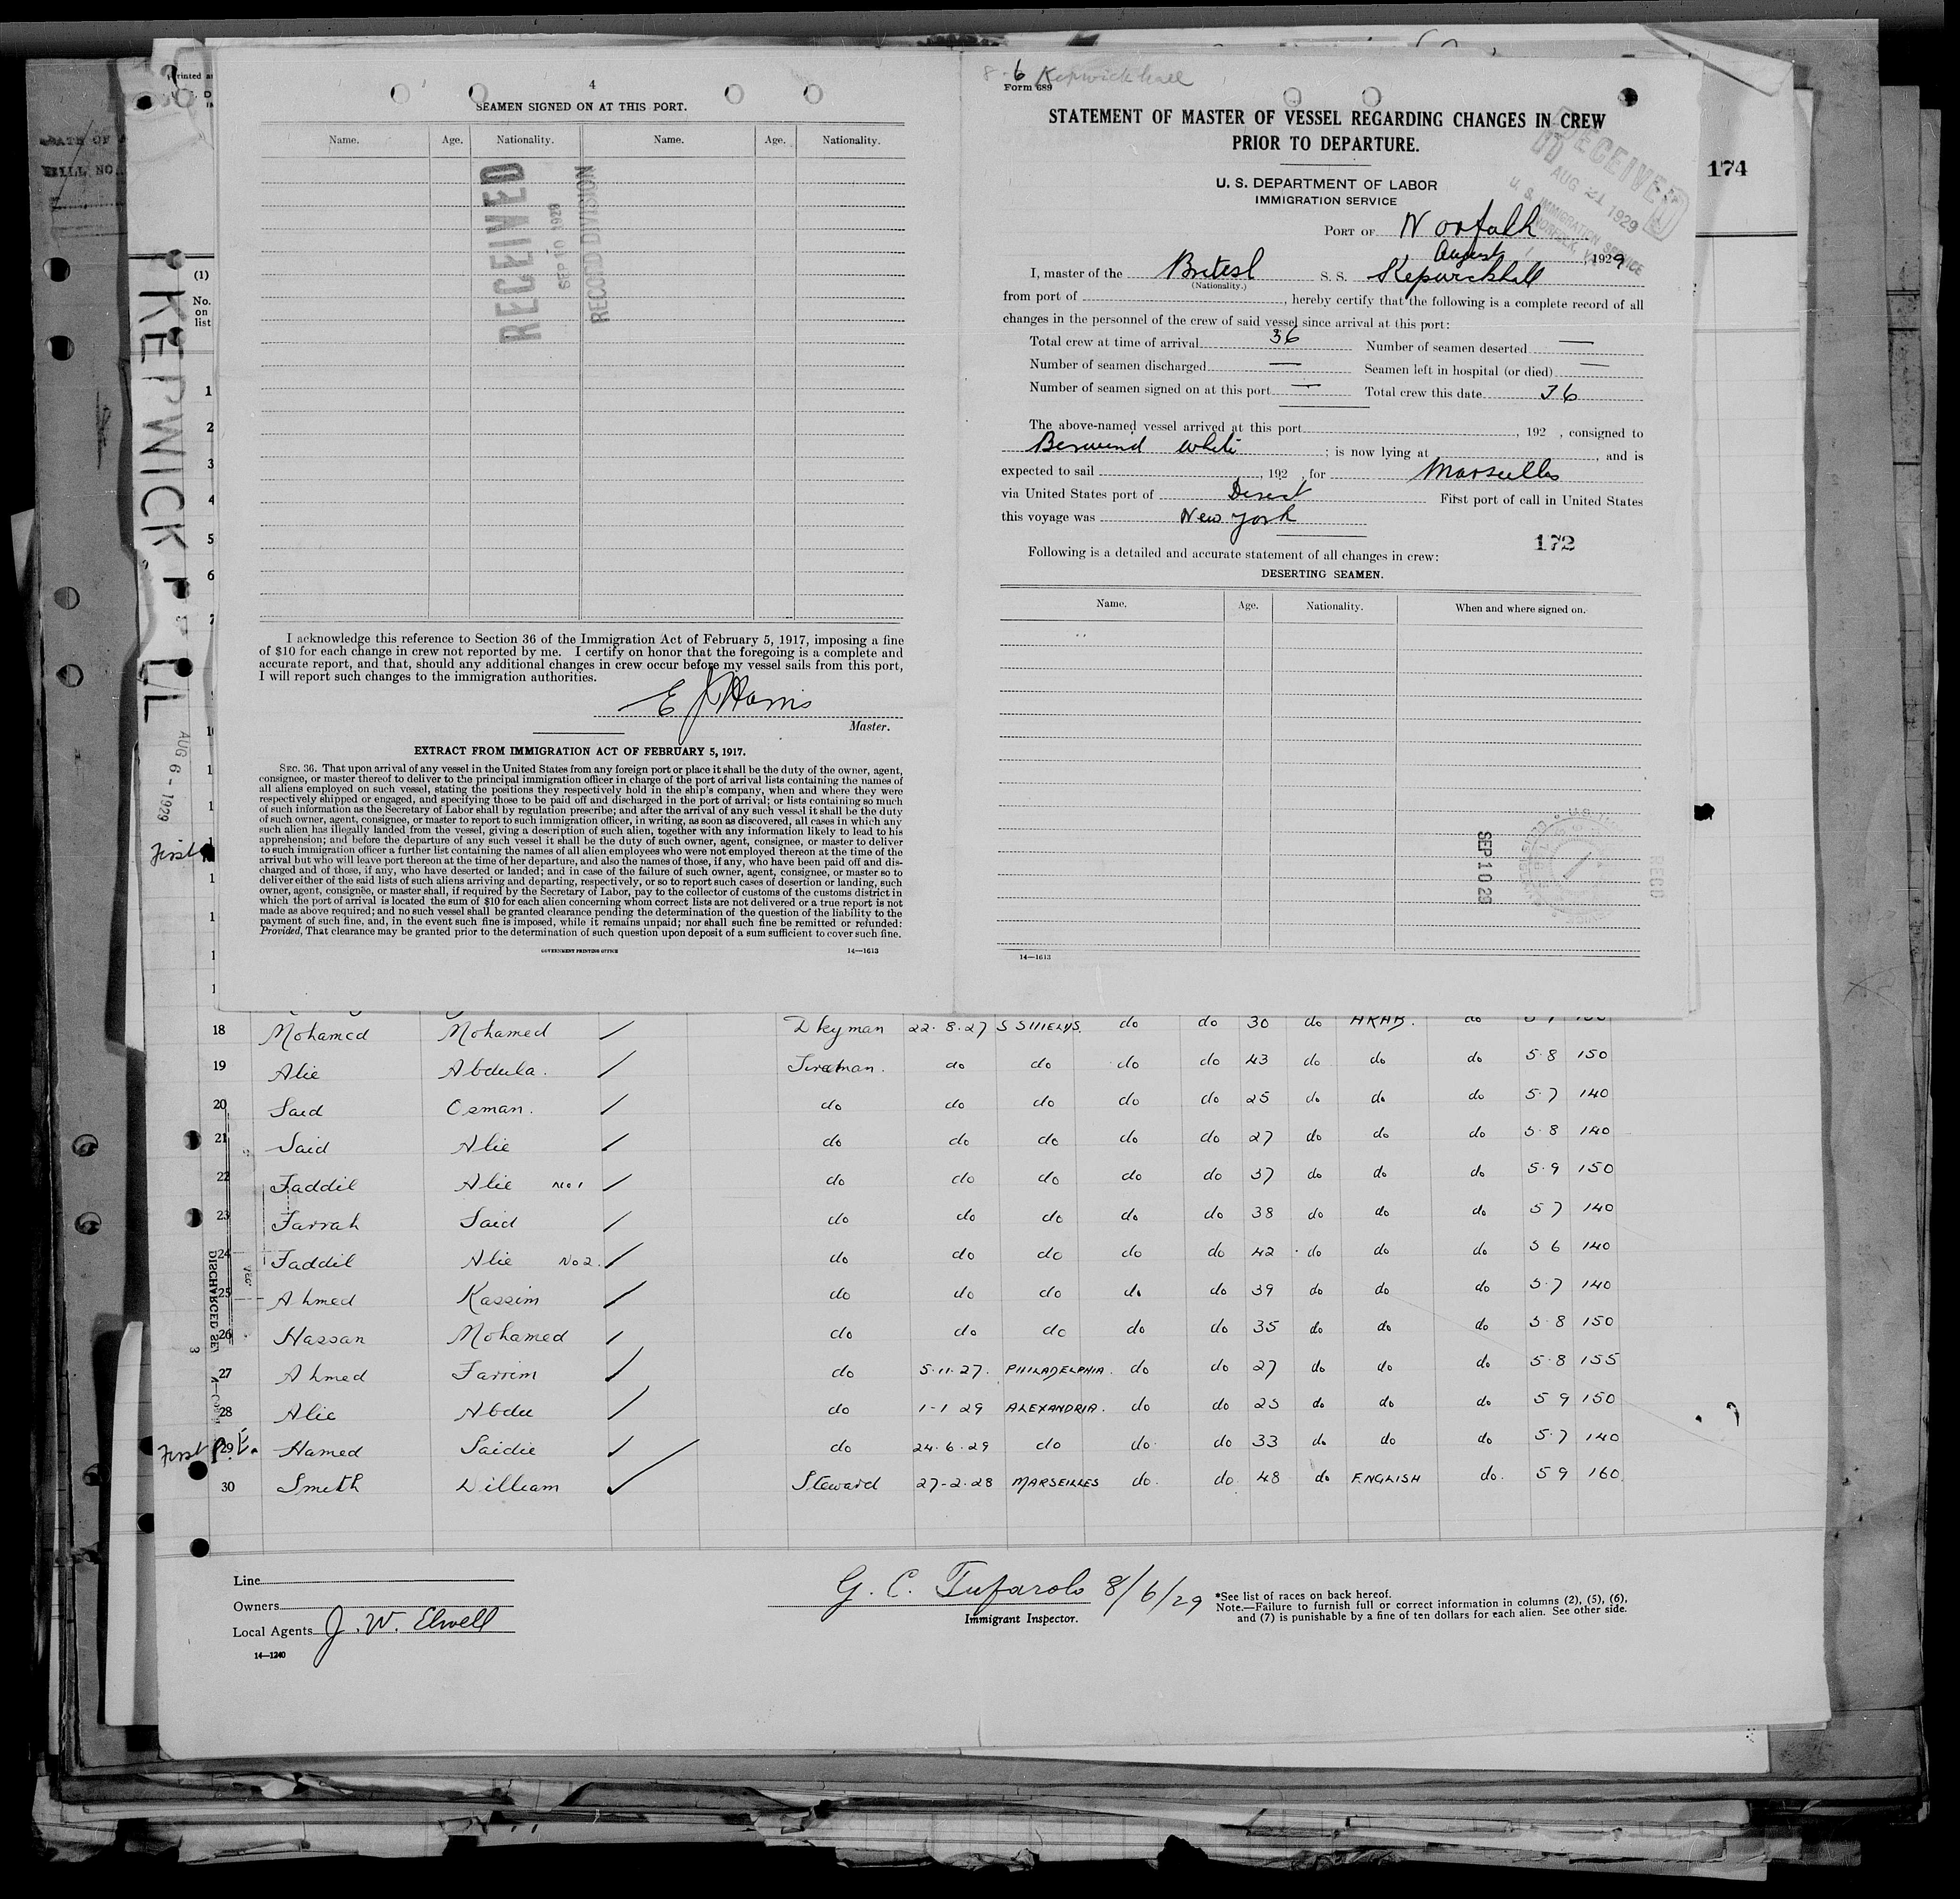 4
SEAMEN SIGNED ON AT THIS PORT.
Name. Age. Nationality. Name. Age. Nationality.
RECEIVED
SEP 10 1929
RECORD DIVISION
I acknowledge this reference to Section 36 of the Immigration Act of February 5, 1917, imposing a fine
of $10 for each change in crew not reported by me. I certify on honor that the foregoing is a complete and
accurate report, and that, should any additional changes in crew occur before my vessel sails from this port,
I will report such changes to the immigration authorities.
E J Harris
Master.
EXTRACT FROM IMMIGRATION ACT OF FEBRUARY 5, 1917.
SEC. 36. That upon arrival of any vessel in the United States from any foreign port or place it shall be the duty of the owner, agent,
consignee, or master thereof to deliver to the principal immigration officer in charge of the port of arrival lists containing the names of
all aliens employed on such vessel, stating the positions they respectively hold in the ship's company, when and where they were
respectively shipped or engaged, and specifying those to be paid off and discharged in the port of arrival; or lists containing so much
of such information as the Secretary of Labor shall by regulation prescribe; and after the arrival of any such vessel it shall be the duty
of such owner, agent, consignee, or master to report to such immigration officer, in writing, as soon as discovered, all cases in which any
such alien has illegally landed from the vessel, giving a description of such alien, together with any information likely to lead to his
apprehension; and before the departure of any such vessel it shall be the duty of such owner, agent, consignee, or master to deliver
to such immigration officer a further list containing the names of all alien employees who were not employed thereon at the time of the
arrival but who will leave port thereon at the time of her departure, and also the names of those, if any, who have been paid off and dis-
charged and of those, if any, who have deserted or landed; and in case of the failure of such owner, agent, consignee, or master so to
deliver either of the said lists of such aliens arriving and departing, respectively, or so to report such cases of desertion or landing, such
owner, agent, consignee, or master shall, if required by the Secretary of Labor, pay to the collector of customs of the customs district in
which the port of arrival is located the sum of $10 for each alien concerning whom correct lists are not delivered or a true report is not
made as above required; and no such vessel shall be granted clearance pending the determination of the question of the liability to the
payment of such fine, and, in the event such fine is imposed, while it remains unpaid; nor shall such fine be remitted or refunded:
Provided, That clearance may be granted prior to the determination of such question upon deposit of a sum sufficient to cover such fine.
GOVERNMENT PRINTING OFFICE 14—1613
8-6 Kepwickhall
Form 689
STATEMENT OF MASTER OF VESSEL REGARDING CHANGES IN CREW
PRIOR TO DEPARTURE.
U. S. DEPARTMENT OF LABOR
IMMIGRATION SERVICE
RECEIVED
AUG 21 1929
U. S. IMMIGRATION SERVICE
NORFOLK, VA.
PORT OF Norfolk
August, 1929
I, master of the British S. S. Kepwickhall
(Nationality.)
from port of , hereby certify that the following is a complete record of all
changes in the personnel of the crew of said vessel since arrival at this port:
Total crew at time of arrival 36 Number of seamen deserted —
Number of seamen discharged — Seamen left in hospital (or died) —
Number of seamen signed on at this port — Total crew this date 36
The above-named vessel arrived at this port , 192 , consigned to
Berwind White ; is now lying at , and is
expected to sail , 192 , for Marseilles
via United States port of Direct First port of call in United States
this voyage was New York
172
Following is a detailed and accurate statement of all changes in crew:
DESERTING SEAMEN.
Name. Age. Nationality. When and where signed on.
SEP 10 29
REC'D
14—1613
174
(1)
No.
on
list
KEPWICK HALL
AUG 6 - 1929
First
18 Mohamed Mohamed / Dkyman 22.8.27 S SHIELDS. do do 30 do ARAB. do
19 Alie Abdula. / Fireman. do do do do 43 do do do 5.8 150
20 Said Osman. / do do do do do 25 do do do 5.7 140
21 Said Alie / do do do do do 27 do do do 5.8 140
22 Faddil Alie No 1 / do do do do do 37 do do do 5.9 150
23 Farrah Said / do do do do do 38 do do do 5 7 140
24 Faddil Alie No 2. / do do do do do 42 do do do 5 6 140
25 Ahmed Kassim / do do do do do 39 do do do 5.7 140
26 Hassan Mohamed / do do do do do 35 do do do 5 8 150
27 Ahmed Farrim / do 5.11.27. PHILADELPHIA. do do 27 do do do 5.8 155
28 Alie Abdu / do 1-1 29 ALEXANDRIA. do do 25 do do do 5 9 150
First 29 Hamed Saidie / do 24.6.29 do do do 33 do do do 5.7 140
30 Smith William / Steward 27-2.28 MARSEILLES do. do. 48 do ENGLISH do. 5 9 160
Line
Owners
Local Agents J. W. Elwell
14—1240
G. C. Tufarolo 8/6/29
Immigrant Inspector.
*See list of races on back hereof.
Note.—Failure to furnish full or correct information in columns (2), (5), (6),
and (7) is punishable by a fine of ten dollars for each alien. See other side.